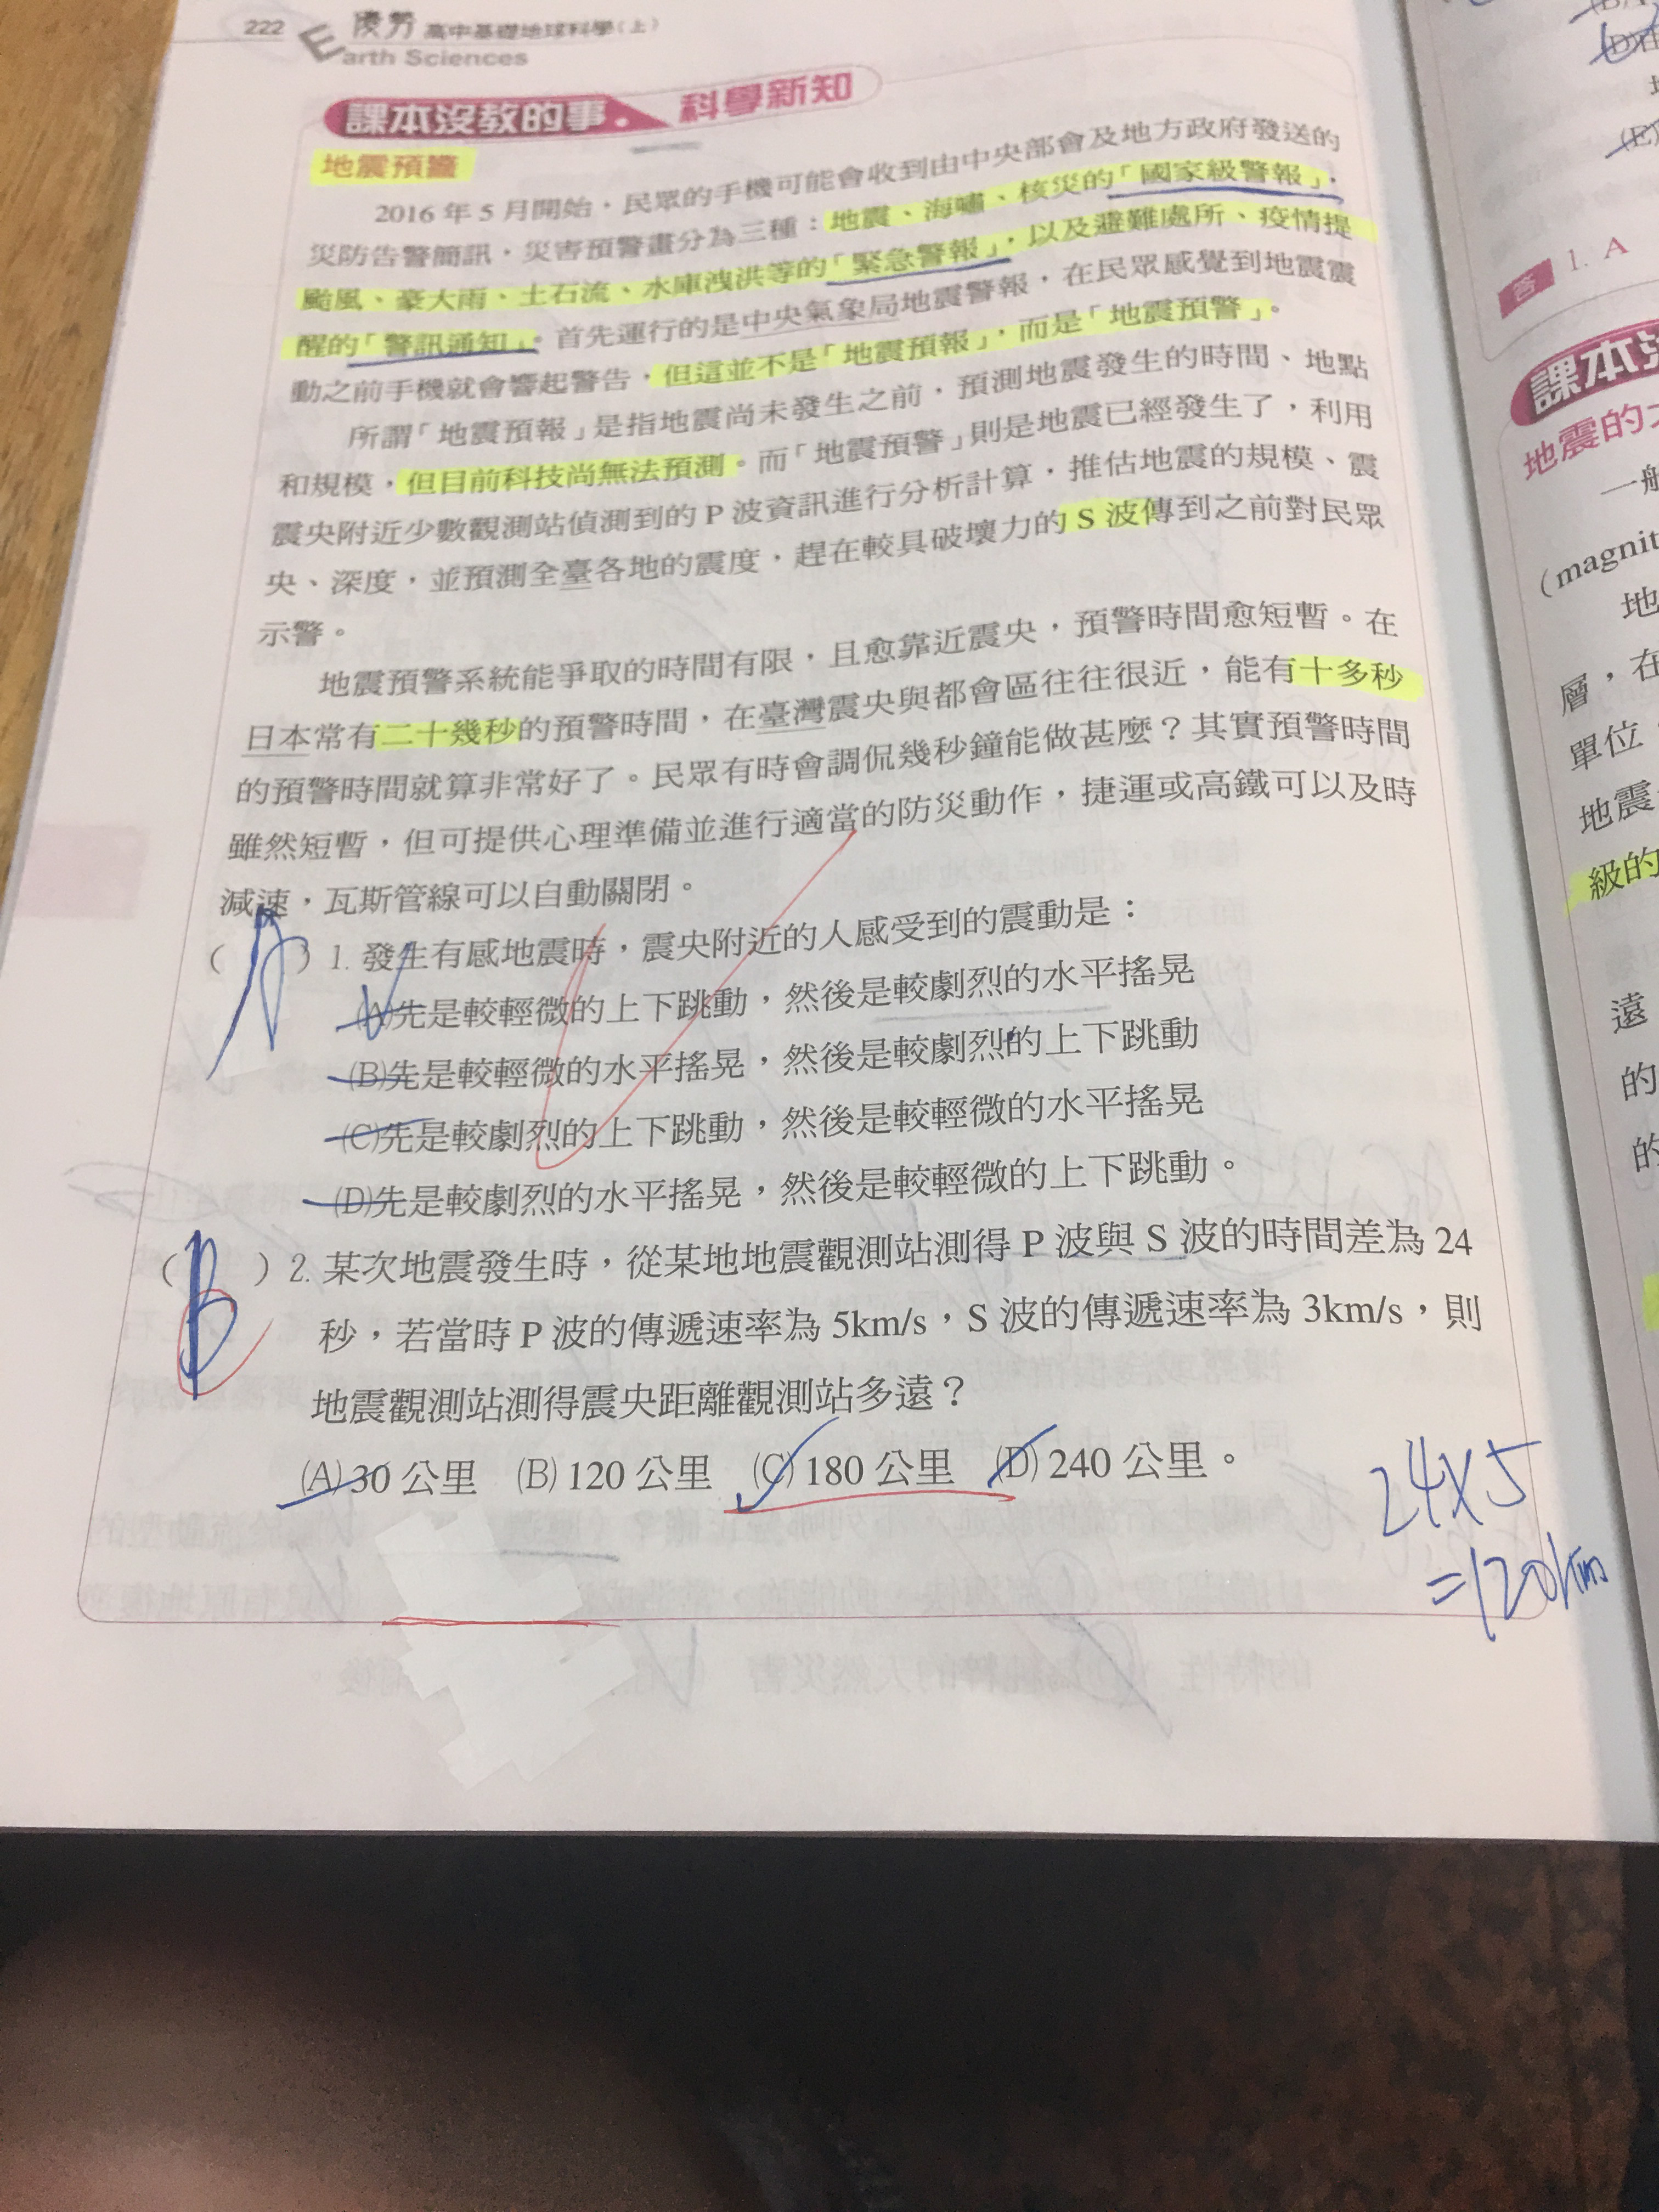 222 陵努 高中基礎地球科學(上)
Earth Sciences
課本沒教的事・科學新知
地震預警
2016 年 5 月開始，民眾的手機可能會收到由中央部會及地方政府發送的
災防告警簡訊，災害預警畫分為三種：地震、海嘯、核災的「國家級警報」，
颱風、豪大雨、土石流、水庫洩洪等的「緊急警報」，以及避難處所、疫情提
醒的「警訊通知」。首先運行的是中央氣象局地震警報，在民眾感覺到地震震
動之前手機就會響起警告，但這並不是「地震預報」，而是「地震預警」。
所謂「地震預報」是指地震尚未發生之前，預測地震發生的時間、地點
和規模，但目前科技尚無法預測。而「地震預警」則是地震已經發生了，利用
震央附近少數觀測站偵測到的 P 波資訊進行分析計算，推估地震的規模、震
央、深度，並預測全臺各地的震度，趕在較具破壞力的 S 波傳到之前對民眾
示警。
地震預警系統能爭取的時間有限，且愈靠近震央，預警時間愈短暫。在
日本常有二十幾秒的預警時間，在臺灣震央與都會區往往很近，能有十多秒
的預警時間就算非常好了。民眾有時會調侃幾秒鐘能做甚麼？其實預警時間
雖然短暫，但可提供心理準備並進行適當的防災動作，捷運或高鐵可以及時
減速，瓦斯管線可以自動關閉。
( A ) 1. 發生有感地震時，震央附近的人感受到的震動是：
(A)先是較輕微的上下跳動，然後是較劇烈的水平搖晃
(B)先是較輕微的水平搖晃，然後是較劇烈的上下跳動
(C)先是較劇烈的上下跳動，然後是較輕微的水平搖晃
(D)先是較劇烈的水平搖晃，然後是較輕微的上下跳動。
( B ) 2. 某次地震發生時，從某地地震觀測站測得 P 波與 S 波的時間差為 24
秒，若當時 P 波的傳遞速率為 5km/s，S 波的傳遞速率為 3km/s，則
地震觀測站測得震央距離觀測站多遠？
(A) 30 公里 (B) 120 公里 (C) 180 公里 (D) 240 公里。
24×5
=120km
(E)
答 1. A
課本
地震的
一般
(magnit
地
層，在
單位
地震
級的
遠
的
的